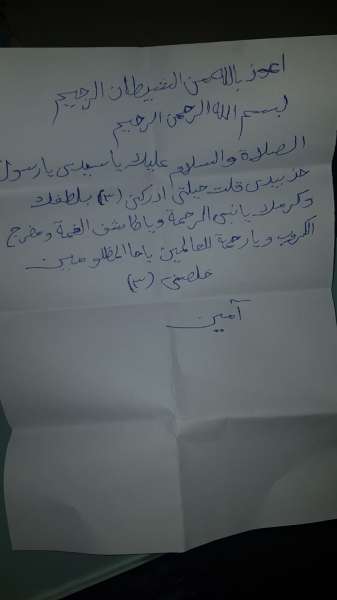 اعوذ بالله من الشيطان الرجيم
بسم الله الرحمن الرحيم
الصلاة والسلام عليك يا سيدي يا رسول
خذ بيدي قلت حيلتي ادركني (٣) بلطفك
وكرمك يا نبي الرحمة ويا كاشف الغمة ومفرج
الكروب ويا رحمة للعالمين يا المظلومين
خلصني (٣)
آمين